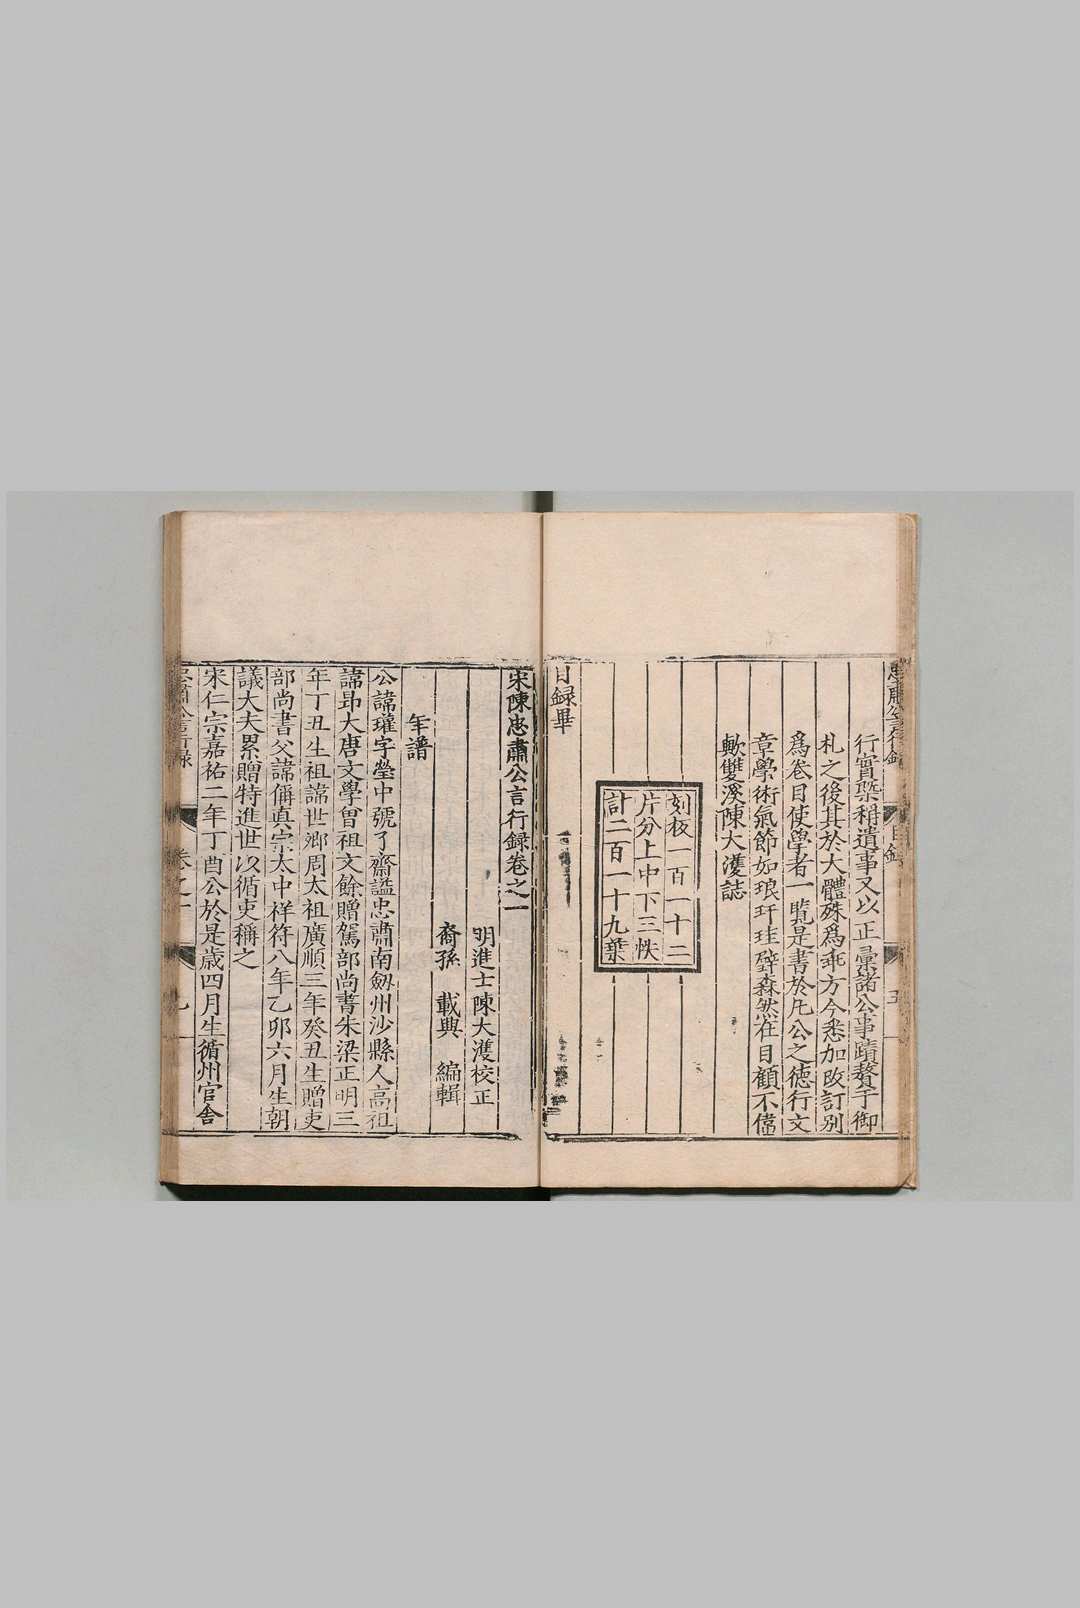 行實槩稱遺事又以正彙諸公事蹟贅于御
札之後其於大體殊爲乖方今悉加改訂別
爲卷目使學者一覧是書於凡公之德行文
章學術氣節如琅玕珪璧森然在目顧不偉
歟雙溪陳大濩誌
刻板一百一十二
片分上中下三帙
計二百一十九葉
目録畢
宋陳忠肅公言行録卷之一
明進士陳大濩校正
裔孫 載興 編輯
年譜
公諱瓘字瑩中號了齋謚忠肅南劔州沙縣人高祖
諱昻大唐文學曾祖文餘贈駕部尚書朱梁正明三
年丁丑生祖諱世卿周太祖廣順三年癸丑生贈吏
部尚書父諱偁真宗太中祥符八年乙卯六月生朝
議大夫累贈特進世以循吏稱之
宋仁宗嘉祐二年丁酉公於是歲四月生循州官舍
忠肅公言行録 卷之一 一